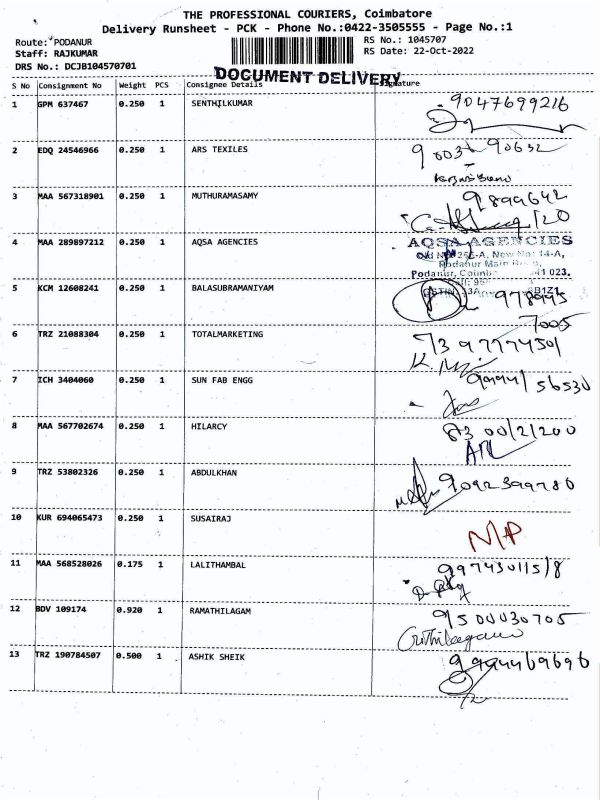 THE PROFESSIONAL COURIERS, Coimbatore
Delivery Runsheet - PCK - Phone No.:0422-3505555 - Page No.:1
Route: PODANUR
RS No.: 1045707
Staff: RAJKUMAR
RS Date: 22-Oct-2022
DRS No.: DCJB104570701
DOCUMENT DELIVERY
S No Consignment No Weight PCS Consignee Details Signature
1 GPM 637467 0.250 1 SENTHILKUMAR 9047699216
2 EDQ 24546966 0.250 1 ARS TEXILES
3 MAA 567318901 0.250 1 MUTHURAMASAMY 9899642
120
4 MAA 289897212 0.250 1 AQSA AGENCIES AQSA AGENCIES
A, New No: 14-A,
Podanur Main
Podanur, 023.
5 KCM 12608241 0.250 1 BALASUBRAMANIYAM 978945
7005
6 TRZ 21088304 0.250 1 TOTALMARKETING
7 ICH 3404060 0.250 1 SUN FAB ENGG 56530
8 MAA 567702674 0.250 1 HILARCY
9 TRZ 53802326 0.250 1 ABDULKHAN 9092399786
10 KUR 694065473 0.250 1 SUSAIRAJ N/P
11 MAA 568528026 0.175 1 LALITHAMBAL
12 BDV 109174 0.920 1 RAMATHILAGAM 9500030705
13 TRZ 190784507 0.500 1 ASHIK SHEIK 9994469696